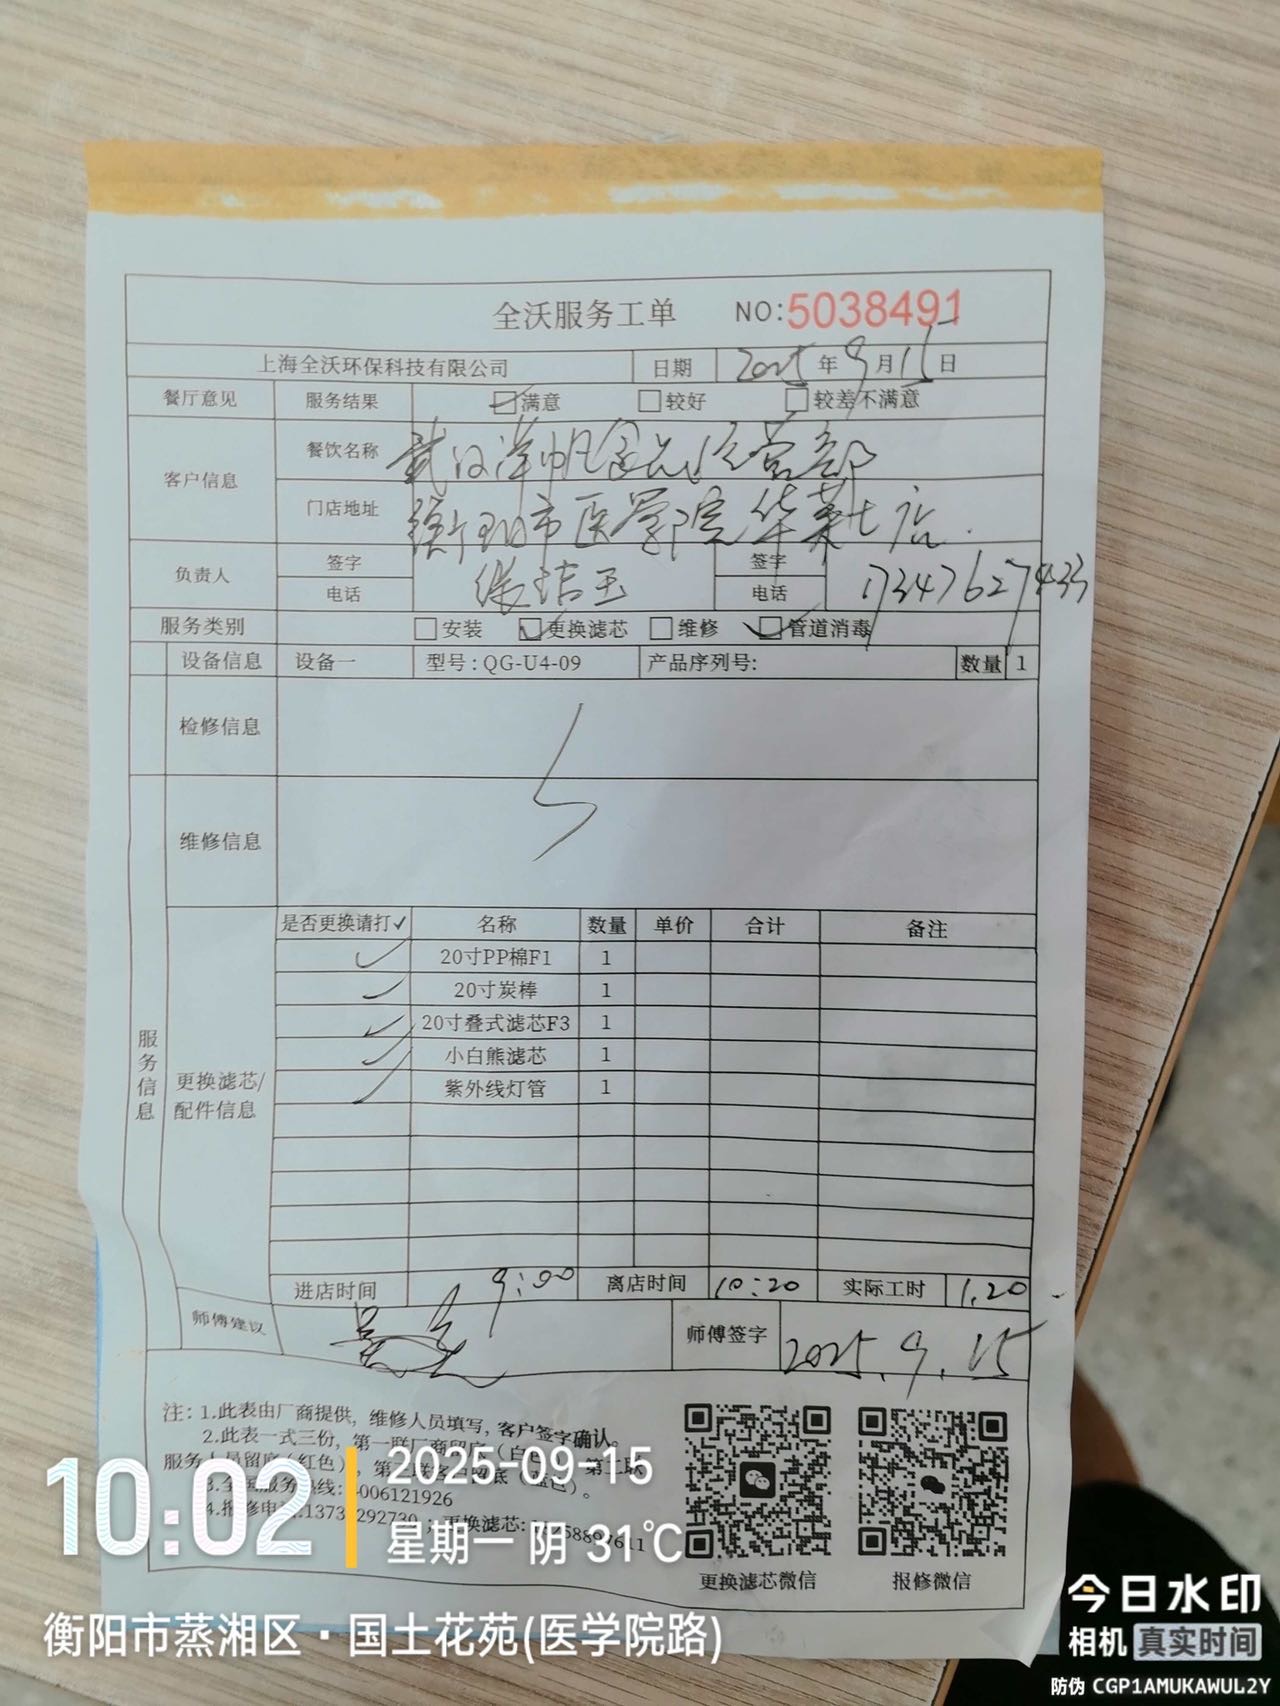 全沃服务工单 NO:5038491
上海全沃环保科技有限公司 日期 2025年9月15日
餐厅意见 服务结果 满意 较好 较差不满意
客户信息 餐饮名称 武汉洋帆食品经营部
门店地址 衡阳市医学院华莱士店.
负责人 签字 签字
电话 电话 17347627433
服务类别 安装 更换滤芯 维修 管道消毒
设备信息 设备一 型号:QG-U4-09 产品序列号: 数量 1
检修信息
维修信息
服务信息
更换滤芯/配件信息
是否更换请打✓ 名称 数量 单价 合计 备注
✓ 20寸PP棉F1 1
✓ 20寸炭棒 1
✓ 20寸叠式滤芯F3 1
✓ 小白熊滤芯 1
✓ 紫外线灯管 1
进店时间 9:00 离店时间 10:20 实际工时 1.20
师傅建议 师傅签字 2025.9.15
注:1.此表由厂商提供,维修人员填写,客户签字确认。
2.此表一式三份,第一联厂商留底
更换滤芯微信 报修微信
10:02
2025-09-15
星期一 阴 31℃
衡阳市蒸湘区·国土花苑(医学院路)
今日水印
相机 真实时间
防伪 CGP1AMUKAWUL2Y